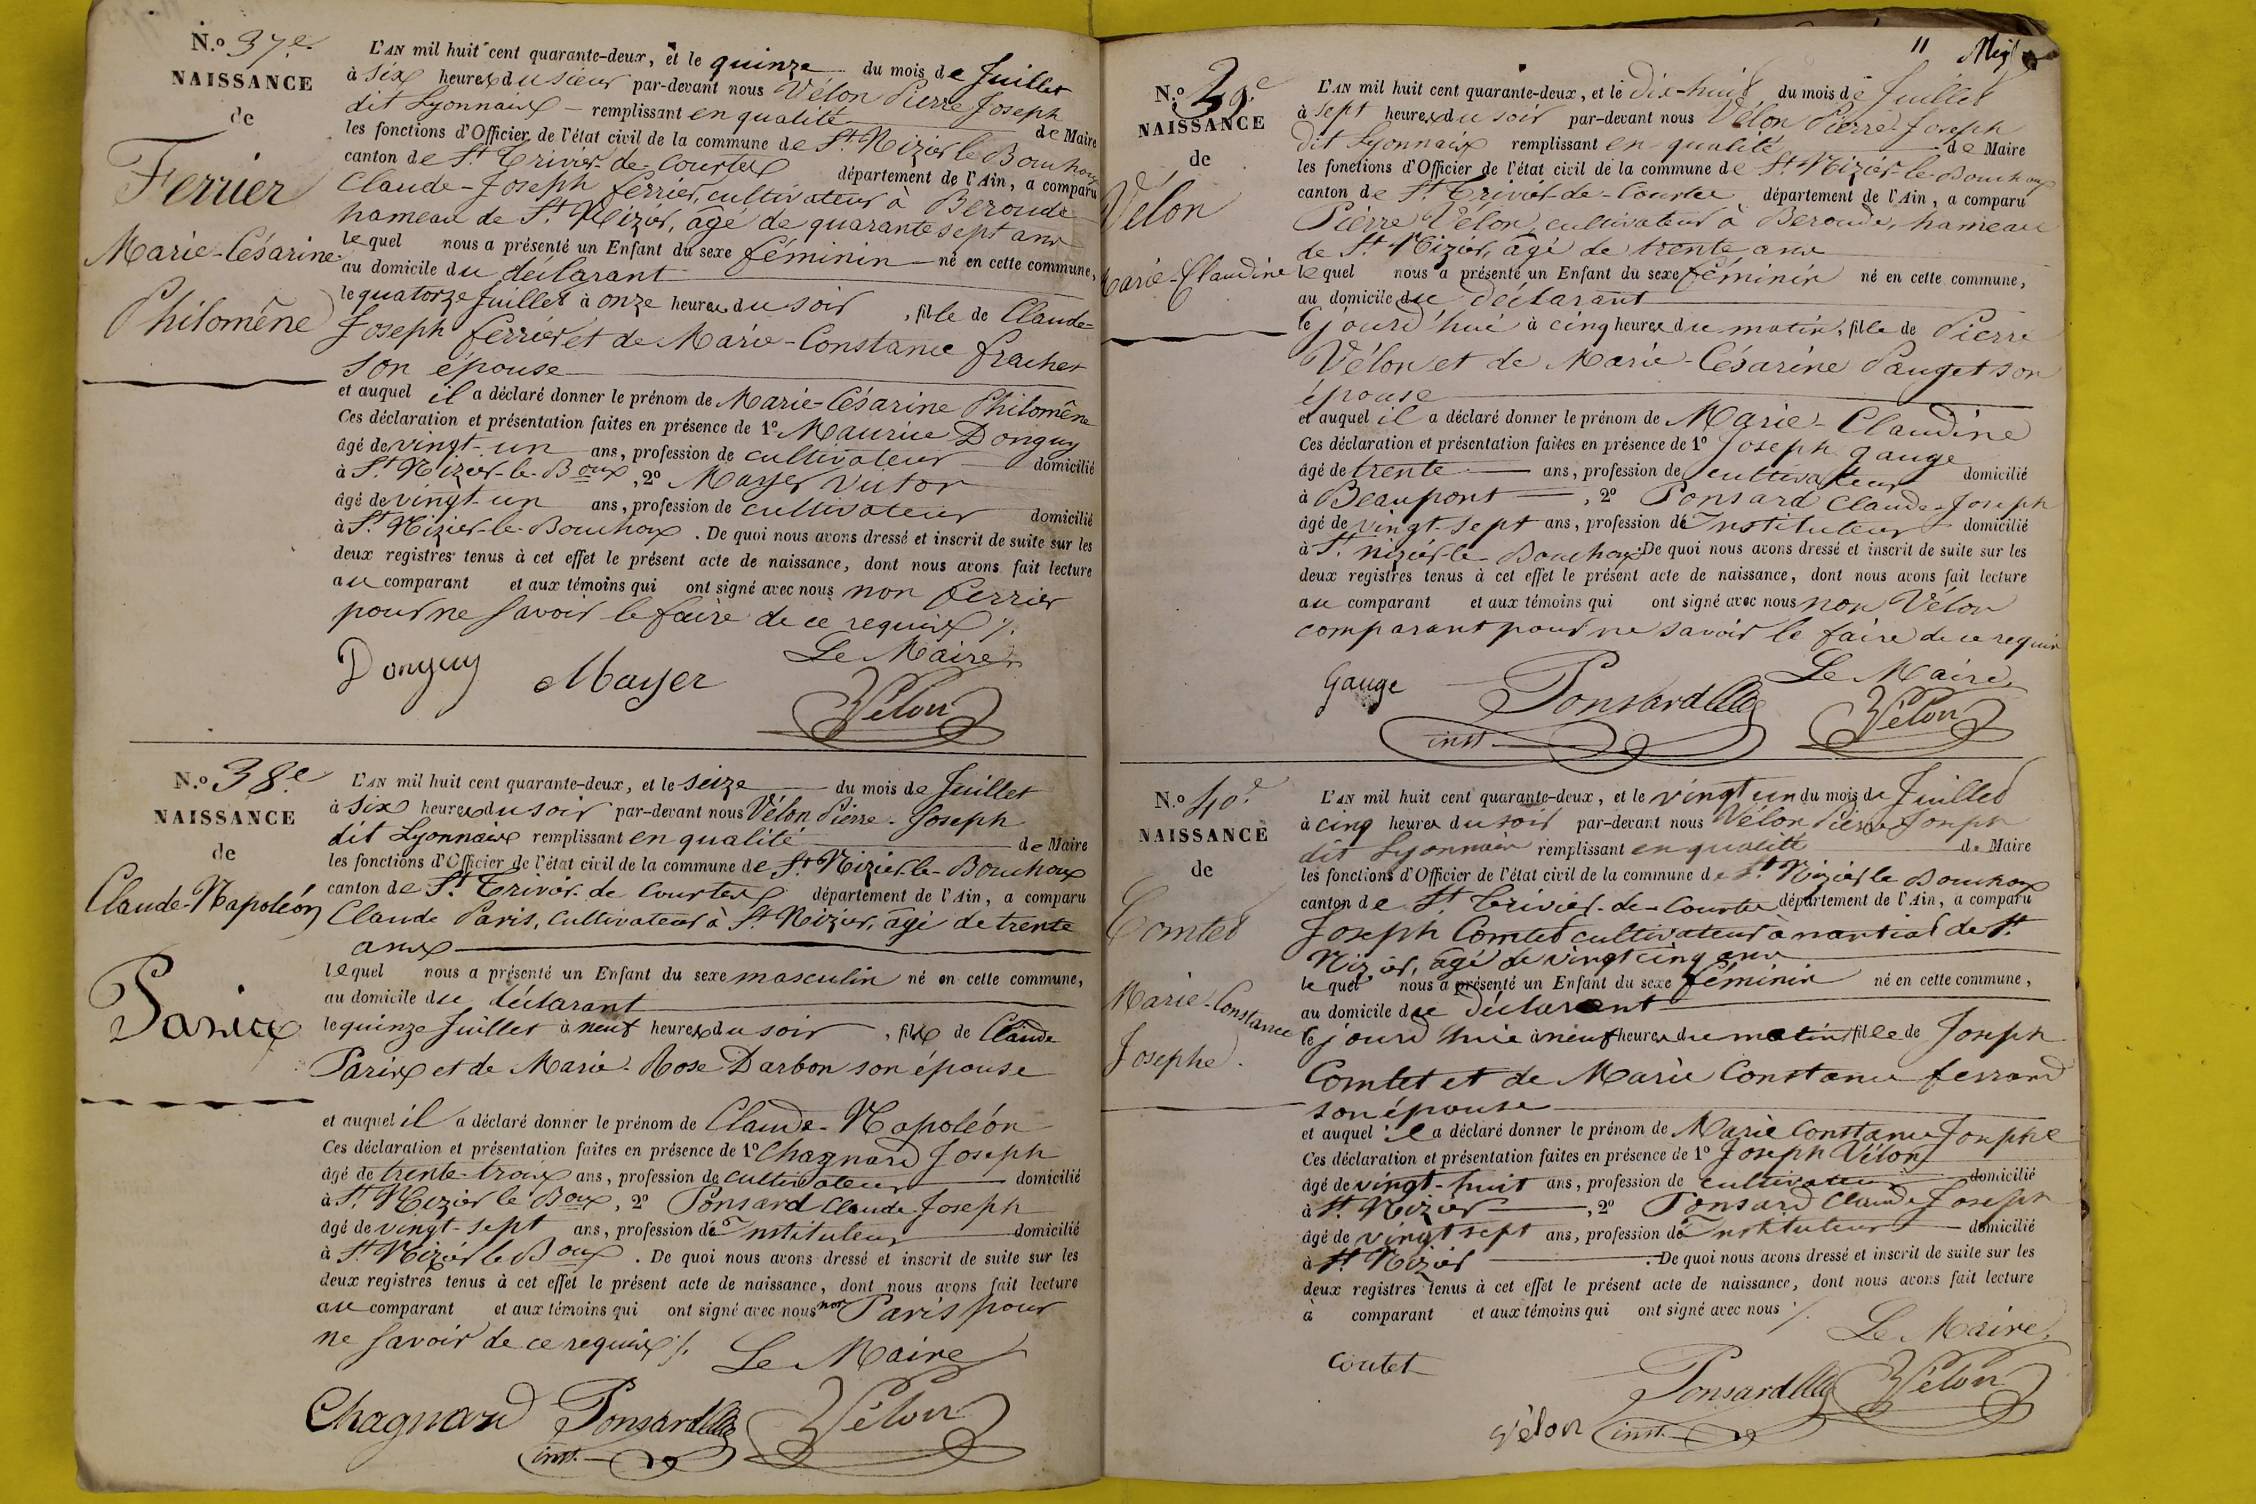 N.o 37e.
NAISSANCE
de
Ferrier
Marie-Césarine
Philomène
L'AN mil huit cent quarante-deux, et le quinze du mois de Juillet
à six heures du soir par-devant nous Vélon Pierre Joseph
dit Lyonnais remplissant en qualité de Maire
les fonctions d'Officier de l'état civil de la commune de St Nizier le Bouchoux
canton de St Trivier-de-Courtes département de l'Ain, a comparu
Claude-Joseph ferrier, cultivateur à Beroude
hameau de St Nizier, agé de quarante sept ans
lequel nous a présenté un Enfant du sexe féminin né en cette commune,
au domicile du déclarant
le quatorze Juillet à onze heures du soir, fille de Claude-
Joseph ferrier et de Marie-Constance frachet
son épouse
et auquel il a déclaré donner le prénom de Marie-Césarine Philomène
Ces déclaration et présentation faites en présence de 1º Maurice Donguy
âgé de vingt-un ans, profession de cultivateur domicilié
à St Nizier-le-Boux, 2º Mayer Victor
âgé de vingt-un ans, profession de cultivateur domicilié
à St Nizier-le-Bouchoux. De quoi nous avons dressé et inscrit de suite sur les
deux registres tenus à cet effet le présent acte de naissance, dont nous avons fait lecture
au comparant et aux témoins qui ont signé avec nous non ferrier
pour ne savoir le faire de ce requis ./.
Le Maire
Donguy Mayer Vélon
N.o 38e.
NAISSANCE
de
Claude-Napoléon
Paris
L'AN mil huit cent quarante-deux, et le seize du mois de Juillet
à six heures du soir par-devant nous Vélon Pierre-Joseph
dit Lyonnais remplissant en qualité de Maire
les fonctions d'Officier de l'état civil de la commune de St Nizier-le-Bouchoux
canton de St Trivier de Courtes département de l'Ain, a comparu
Claude Paris, cultivateur à St Nizier, agé de trente
ans
lequel nous a présenté un Enfant du sexe masculin né en cette commune,
au domicile du déclarant
le quinze Juillet à neuf heures du soir, fils de Claude
Paris et de Marie-Rose Darbon son épouse
et auquel il a déclaré donner le prénom de Claude-Napoléon
Ces déclaration et présentation faites en présence de 1º Chagnard Joseph
âgé de trente-trois ans, profession de cultivateur domicilié
à St Nizier le Boux, 2º Ponsard Claude Joseph
âgé de vingt-sept ans, profession de Instituteur domicilié
à St Nizier le Boux. De quoi nous avons dressé et inscrit de suite sur les
deux registres tenus à cet effet le présent acte de naissance, dont nous avons fait lecture
au comparant et aux témoins qui ont signé avec nous non Paris pour
ne savoir de ce requis ./. Le Maire
Chagnard Ponsard Vélon
inst.
11
N.o 39e
NAISSANCE
de
Vélon
Marie-Claudine
L'AN mil huit cent quarante-deux, et le dix-huit du mois de Juillet
à sept heures du soir par-devant nous Vélon Pierre-Joseph
dit Lyonnais remplissant en qualité de Maire
les fonctions d'Officier de l'état civil de la commune de St Nizier-le-Bouchoux
canton de St Trivier-de-Courtes département de l'Ain, a comparu
Pierre Vélon, cultivateur à Beroude, hameau
de St Nizier, âgé de trente ans
lequel nous a présenté un Enfant du sexe féminin né en cette commune,
au domicile du déclarant
le jourd'hui à cinq heures du matin, fille de Pierre
Vélon et de Marie-Césarine Pauget son
épouse
et auquel il a déclaré donner le prénom de Marie-Claudine
Ces déclaration et présentation faites en présence de 1º Joseph gauge
âgé de trente ans, profession de cultivateur domicilié
à Beaupont, 2º Ponsard Claude-Joseph
âgé de vingt-sept ans, profession de Instituteur domicilié
à St nizier-le-Bouchoux. De quoi nous avons dressé et inscrit de suite sur les
deux registres tenus à cet effet le présent acte de naissance, dont nous avons fait lecture
au comparant et aux témoins qui ont signé avec nous non Vélon
comparant pour ne savoir le faire de ce requis
Le Maire
Gauge Ponsard Vélon
inst.
N.o 40e
NAISSANCE
de
Comtet
Marie-Constance
Josephe.
L'AN mil huit cent quarante-deux, et le vingt un du mois de Juillet
à cinq heures du soir par-devant nous Vélon Pierre Joseph
dit Lyonnais remplissant en qualité de Maire
les fonctions d'Officier de l'état civil de la commune de St Nizier le Bouchoux
canton de St Trivier-de-Courtes département de l'Ain, a comparu
Joseph Comtet cultivateur à de St
Nizier, âgé de vingt cinq ans
lequel nous a présenté un Enfant du sexe féminin né en cette commune,
au domicile du déclarant
le jourd'hui à neuf heures du matin fille de Joseph
Comtet et de Marie Constance ferrand
son épouse
et auquel il a déclaré donner le prénom de Marie Constance Josephe
Ces déclaration et présentation faites en présence de 1º Joseph Vélon
âgé de vingt-huit ans, profession de cultivateur domicilié
à St Nizier, 2º Ponsard Claude Joseph
âgé de vingt sept ans, profession de Instituteur domicilié
à St Nizier. De quoi nous avons dressé et inscrit de suite sur les
deux registres tenus à cet effet le présent acte de naissance, dont nous avons fait lecture
à comparant et aux témoins qui ont signé avec nous ./.
Le Maire,
Coutet Ponsard Vélon
Vélon inst.